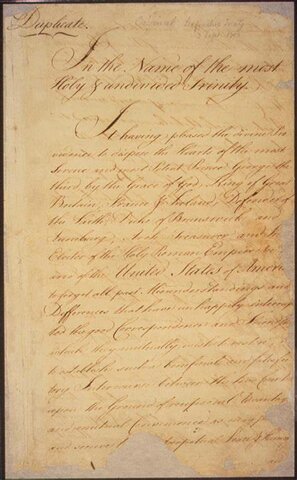 Duplicate.
Definitive Treaty
In the Name of the most
Holy & undivided Trinity.
It having pleased the divine Pro
vidence to dispose the Hearts of the most
Serene and most Potent Prince George the
third, by the Grace of God, King of Great
Britain, France & Ireland, Defender of
the Faith, Duke of Brunswick and
Lunebourg, Arch Treasurer and
Elector of the Holy Roman Empire
and of the United States of America
to forget all past Misunderstandings and
Differences that have unhappily interrup
ted the good Correspondence and Friendship
which they mutually wish to
to establish such a beneficial and satisfac
tory Intercourse between the two Countries
upon the Ground of reciprocal Advantages
and mutual Convenience as may
and secure to both perpetual Peace &